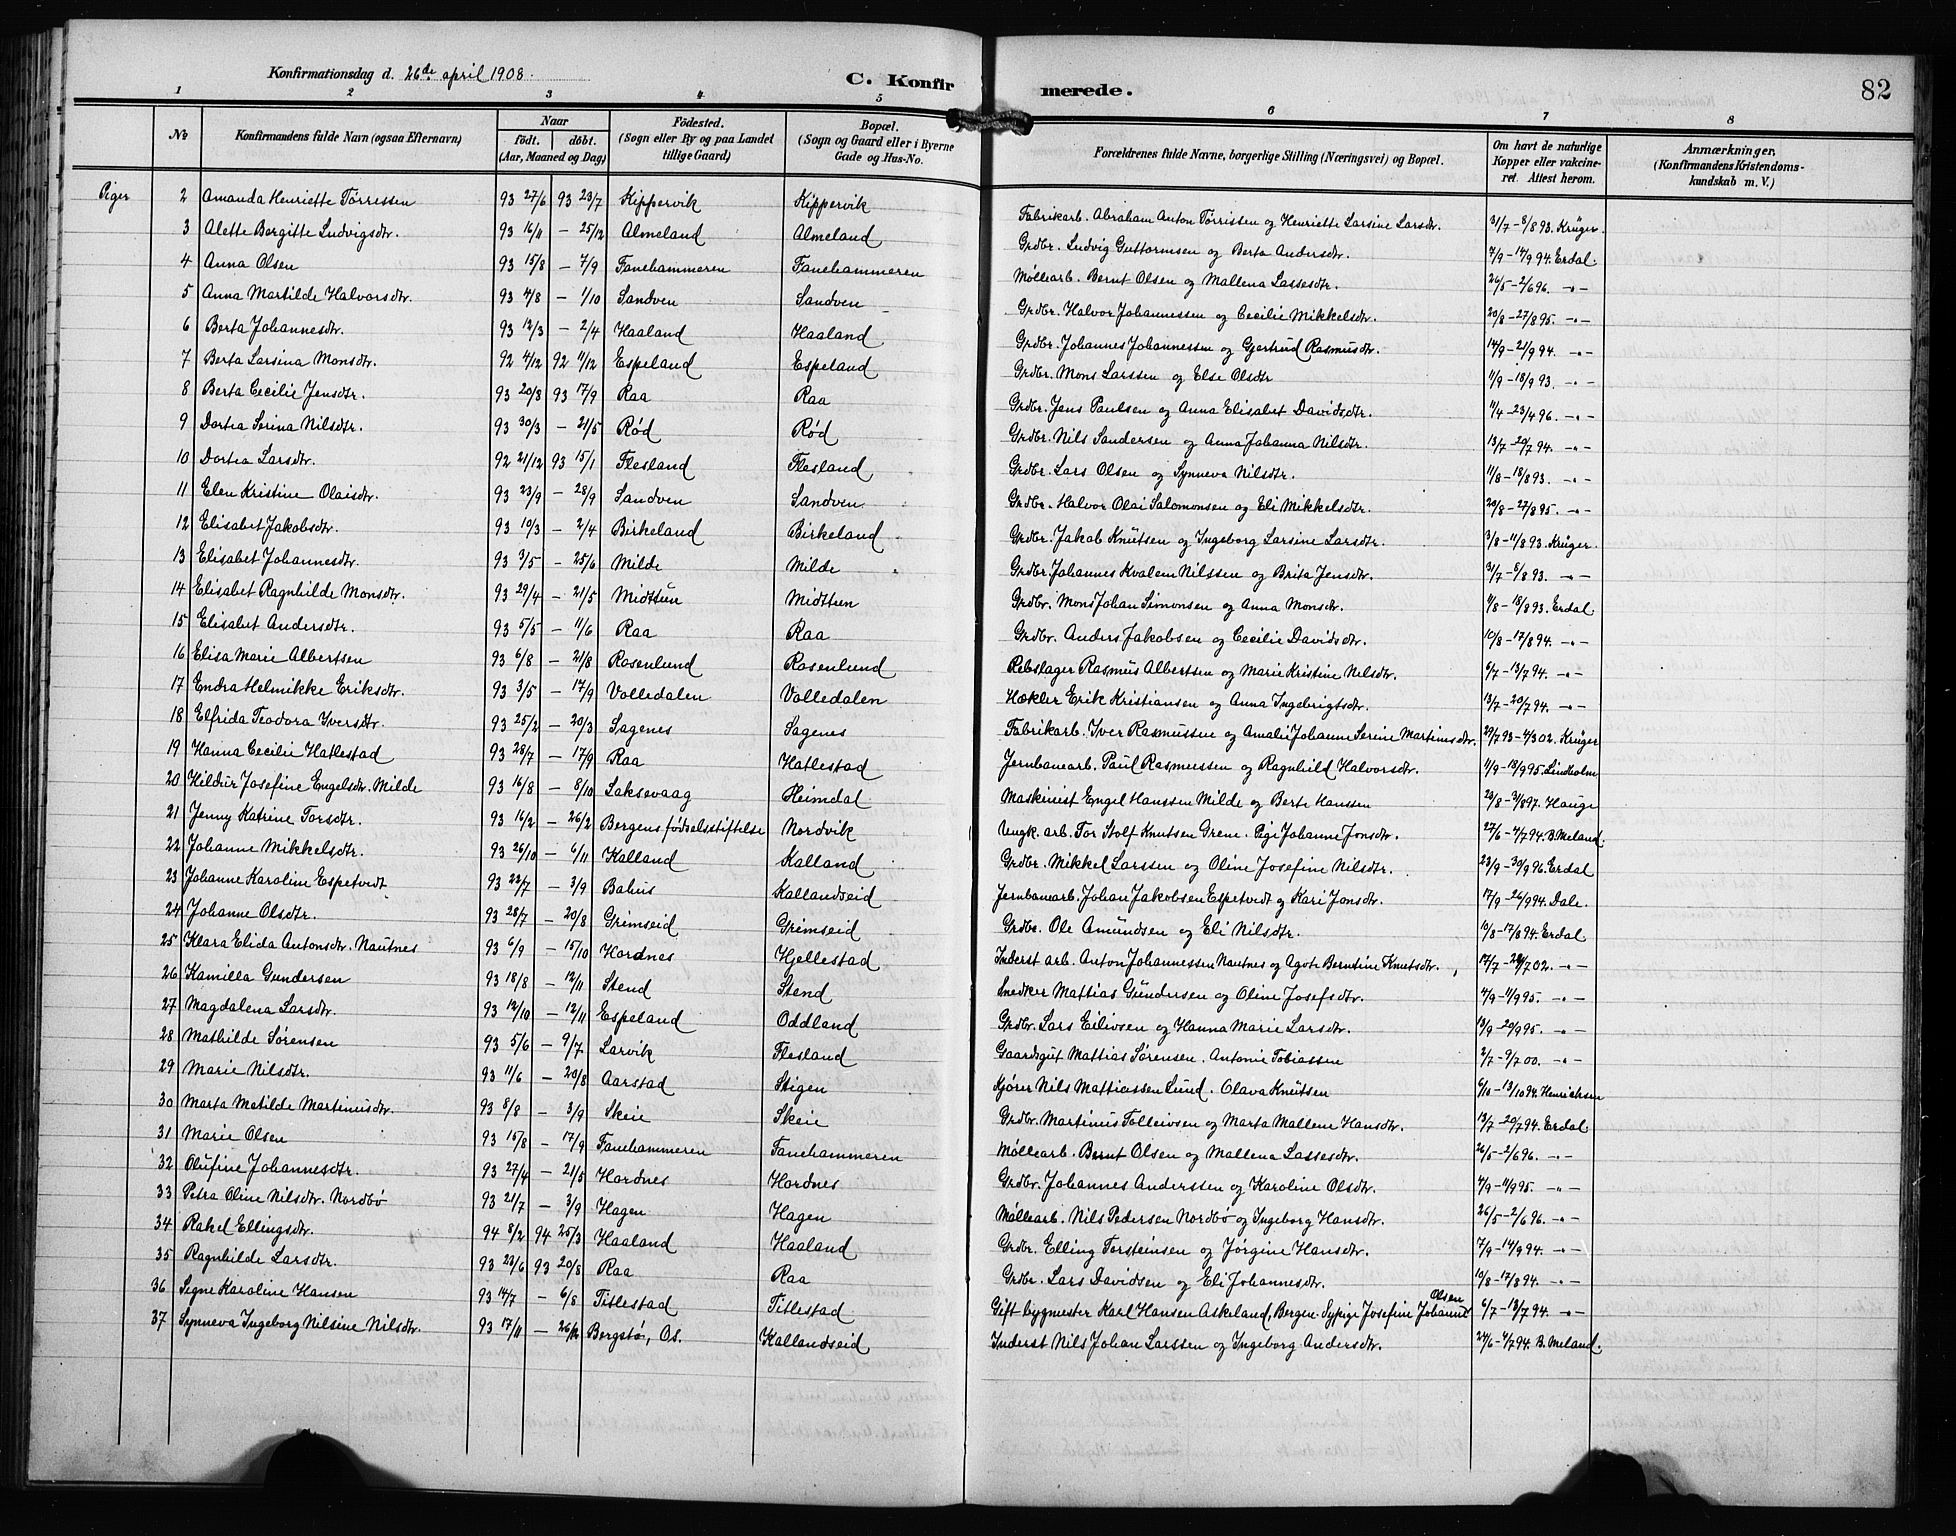 Konfirmationsdag d. 26de april 1908. C. Konfirmerede. 82
1 2 3 4 5 6 7 8
No Konfirmandens fulde Navn (ogsaa Efternavn) Naar født. døbt. (Aar, Maaned og Dag) Fødested. (Sogn eller By og paa Landet tillige Gaard) Bopæl. (Sogn og Gaard eller i Byerne Gade og Hus-No. Forældrenes fulde Navne, borgerlige Stilling (Næringsvei) og Bopæl. Om havt de naturlige Kopper eller vakcineret. Attest herom. Anmærkninger, (Konfirmandens Kristendomskundskab m. V.)
Piger 2 Amanda Henriette Tørressen 93 27/6 93 23/7 Kippervik Kippervik Fabrikarb. Abraham Anton Tørrissen og Henriette Larsine Larsdtr. 31/7 - 8/8 93. Krüger.
3 Alette Bergitte Ludvigsdtr. 93 16/11 — 25/12 Almeland Almeland Grdbr. Ludvig Guttormsen og Berta Andersdtr. 7/9 - 14/9 94. Erdal
4 Anna Olsen 93 15/8 — 7/9 Fanehammeren Fanehammeren Møllearb. Bernt Olsen og Mallena Lassesdtr. 26/5 - 2/6 96. -"-
5 Anna Martilde Halvorsdtr. 93 4/8 — 1/10 Sandven Sandven Grdbr. Halvor Johannessen og Cecilie Mikkelsdtr. 20/8 - 27/8 95. -"-
6 Berta Johannesdtr. 93 12/3 — 2/4 Haaland Haaland Grdbr. Johannes Johannessen og Gjertrud Rasmusdtr. 14/9 - 21/9 94. -"-
7 Berta Larsina Monsdtr. 92 4/12 92 11/12 Espeland Espeland Grdbr. Mons Larssen og Else Olsdtr 11/9 - 18/9 93. -"-
8 Berta Cecilie Jensdtr. 93 20/8 93 17/9 Raa Raa Grdbr. Jens Paulsen og Anna Elisabet Davidsdtr. 11/4 - 23/4 96. -"-
9 Dortea Serina Nilsdtr. 93 30/3 — 21/5 Rød Rød Grdbr. Nils Sandersen og Anna Johanna Nilsdtr. 13/7 - 20/7 94. -"-
10 Dortea Larsdtr. 92 21/12 93 15/1 Flesland Flesland Grdbr. Lars Olsen og Synneva Nilsdtr. 11/8 - 18/8 93. -"-
11 Elen Kristine Olaisdtr. 93 23/9 — 28/9 Sandven Sandven Grdbr. Halvor Olai Salomonsen og Eli Mikkelsdtr. 20/8 - 27/8 95. -"-
12 Elisabet Jakobsdtr. 93 10/3 — 2/4 Birkeland Birkeland Grdbr. Jakob Knutsen og Ingeborg Larsine Larsdtr. 3/8 - 11/8 93. Krüger.
13 Elisabet Johannesdtr. 93 3/5 — 25/6 Milde Milde Grdbr. Johannes Kvalem Nilssen og Brita Jensdtr. 31/7 - 8/8 93. -"-
14 Elisabet Ragnhilde Monsdtr. 93 29/4 — 21/5 Midttun Midttun Grdbr. Mons Johan Simonsen og Anna Monsdtr. 11/8 - 18/8 93. Erdal
15 Elisabet Andersdtr. 93 5/5 — 11/6 Raa Raa Grdbr. Anders Jakobsen og Cecilie Davidsdtr. 10/8 - 17/8 94. -"-
16 Elisa Marie Albertsen 93 6/8 — 21/8 Rosenlund Rosenlund Rebslager Rasmus Albertsen og Marie Kristine Nilsdtr. 6/7 - 13/7 94. -"-
17 Endra Helmikke Eriksdtr. 93 3/5 — 17/9 Volledalen Volledalen Hækler Erik Kristiansen og Anna Ingebrigtsdtr. 13/7 - 20/7 94. -"-
18 Elfrida Teodora Iversdtr. 93 25/2 — 20/3 Sagenes Sagenes Fabrikarb. Iver Rasmussen og Amalie Johanne Serine Martinusdtr. 29/7 93 - 4/3 02. Krüger
19 Hanna Cecilie Hatlestad 93 28/7 — 17/9 Raa Hatlestad Jernbanearb. Paul Rasmussen og Ragnhild Halvorsdtr. 11/9 - 18/9 95. Lindholm
20 Hildur Josefine Engelsdtr. Milde 93 16/8 — 8/10 Laksevaag Heimdal Maskinist Engel Hanssen Milde og Berte Hanssen 23/8 - 31/8 97. Hauge
21 Jenny Katrine Torsdtr. 93 16/2 — 26/2 Bergens fødselsstiftelse Nordvik Ungk. arb. Tor Stolf Knutsen Grene. Pige Johanne Jonsdtr. 27/6 - 4/7 94. B. Meland.
22 Johanne Mikkelsdtr. 93 26/10 — 6/11 Kalland Kalland Grdbr. Mikkel Larssen og Oline Josefine Nilsdtr. 23/9 - 30/9 96. Erdal
23 Johanne Karoline Espetvedt 93 22/7 — 3/9 Bahus Kallandseid Jernbanearb. Johan Jakobsen Espetvedt og Kari Jonsdtr. 17/9 - 26/9 94. Dale.
24 Johanne Olsdtr. 93 28/7 — 20/8 Grimseid Grimseid Grdbr. Ole Amundsen og Eli Nilsdtr. 10/8 - 17/8 94. Erdal
25 Klara Elida Antonsdtr. Nautnes 93 6/9 — 15/10 Hordnes Hjellestad Inderst arb. Anton Johannessen Nautnes og Agote Berntine Knutsdtr. 17/7 - 24/7 02. -"-
26 Kamilla Gundersen 93 18/8 — 12/11 Stend Stend Snedker Mattias Gundersen og Oline Josefsdtr. 4/9 - 11/9 95. -"-
27 Magdalena Larsdtr. 93 12/10 — 12/11 Espeland Oddland Grdbr. Lars Eilivsen og Hanna Marie Larsdtr. 13/9 - 20/9 95. -"-
28 Mathilde Sørensen 93 5/6 — 9/7 Larvik Flesland Gaardsgut Mattias Sørensen. Antonie Tobiassen 2/7 - 9/7 00. -"-
29 Marie Nilsdtr. 93 11/6 — 20/8 Aarstad Stigen Kjører Nils Mattiassen Lund. Olava Knutsen 6/10 - 13/10 94. Henrichsen
30 Marta Matilde Martinusdtr. 93 8/8 — 3/9 Skeie Skeie Grdbr. Martinus Tolleivsen og Marta Mallene Hansdtr. 13/7 - 20/7 94. Erdal
31 Marie Olsen 93 15/8 — 17/9 Fanehammeren Fanehammeren Møllearb. Bernt Olsen og Mallena Lassesdtr. 26/5 - 2/6 96. -"-
32 Olufine Johannesdtr. 93 27/4 — 21/5 Hordnes Hordnes Grdbr. Johannes Anderssen og Karoline Olsdtr. 4/9 - 11/9 95. -"-
33 Petra Oline Nilsdtr. Nordbø 93 21/7 — 3/9 Hagen Hagen Møllearb. Nils Pedersen Nordbø og Ingeborg Hansdtr. 26/5 - 2/6 96. -"-
34 Rakel Ellingsdtr. 94 8/2 94 25/3 Haaland Haaland Grdbr. Elling Torsteinsen og Jørgine Hansdtr. 7/9 - 14/9 94. -"-
35 Ragnhilde Larsdtr. 93 23/6 93 20/8 Raa Raa Grdbr. Lars Davidsen og Eli Johannesdtr. 10/8 - 17/8 94. -"-
36 Signe Karoline Hansen 93 14/7 — 6/8 Titlestad Titlestad Gift bygmester Karl Hansen Askeland, Bergen. Sypige Josefine Johanne Olsen 6/7 - 13/7 94. -"-
37 Synneva Ingeborg Nilsine Nilsdtr. 93 17/11 — 26/12 Bergstø, Os. Kallandseid Inderst Nils Johan Larssen og Ingeborg Andersdtr. 24/6 - 4/7 94. B. Meland.